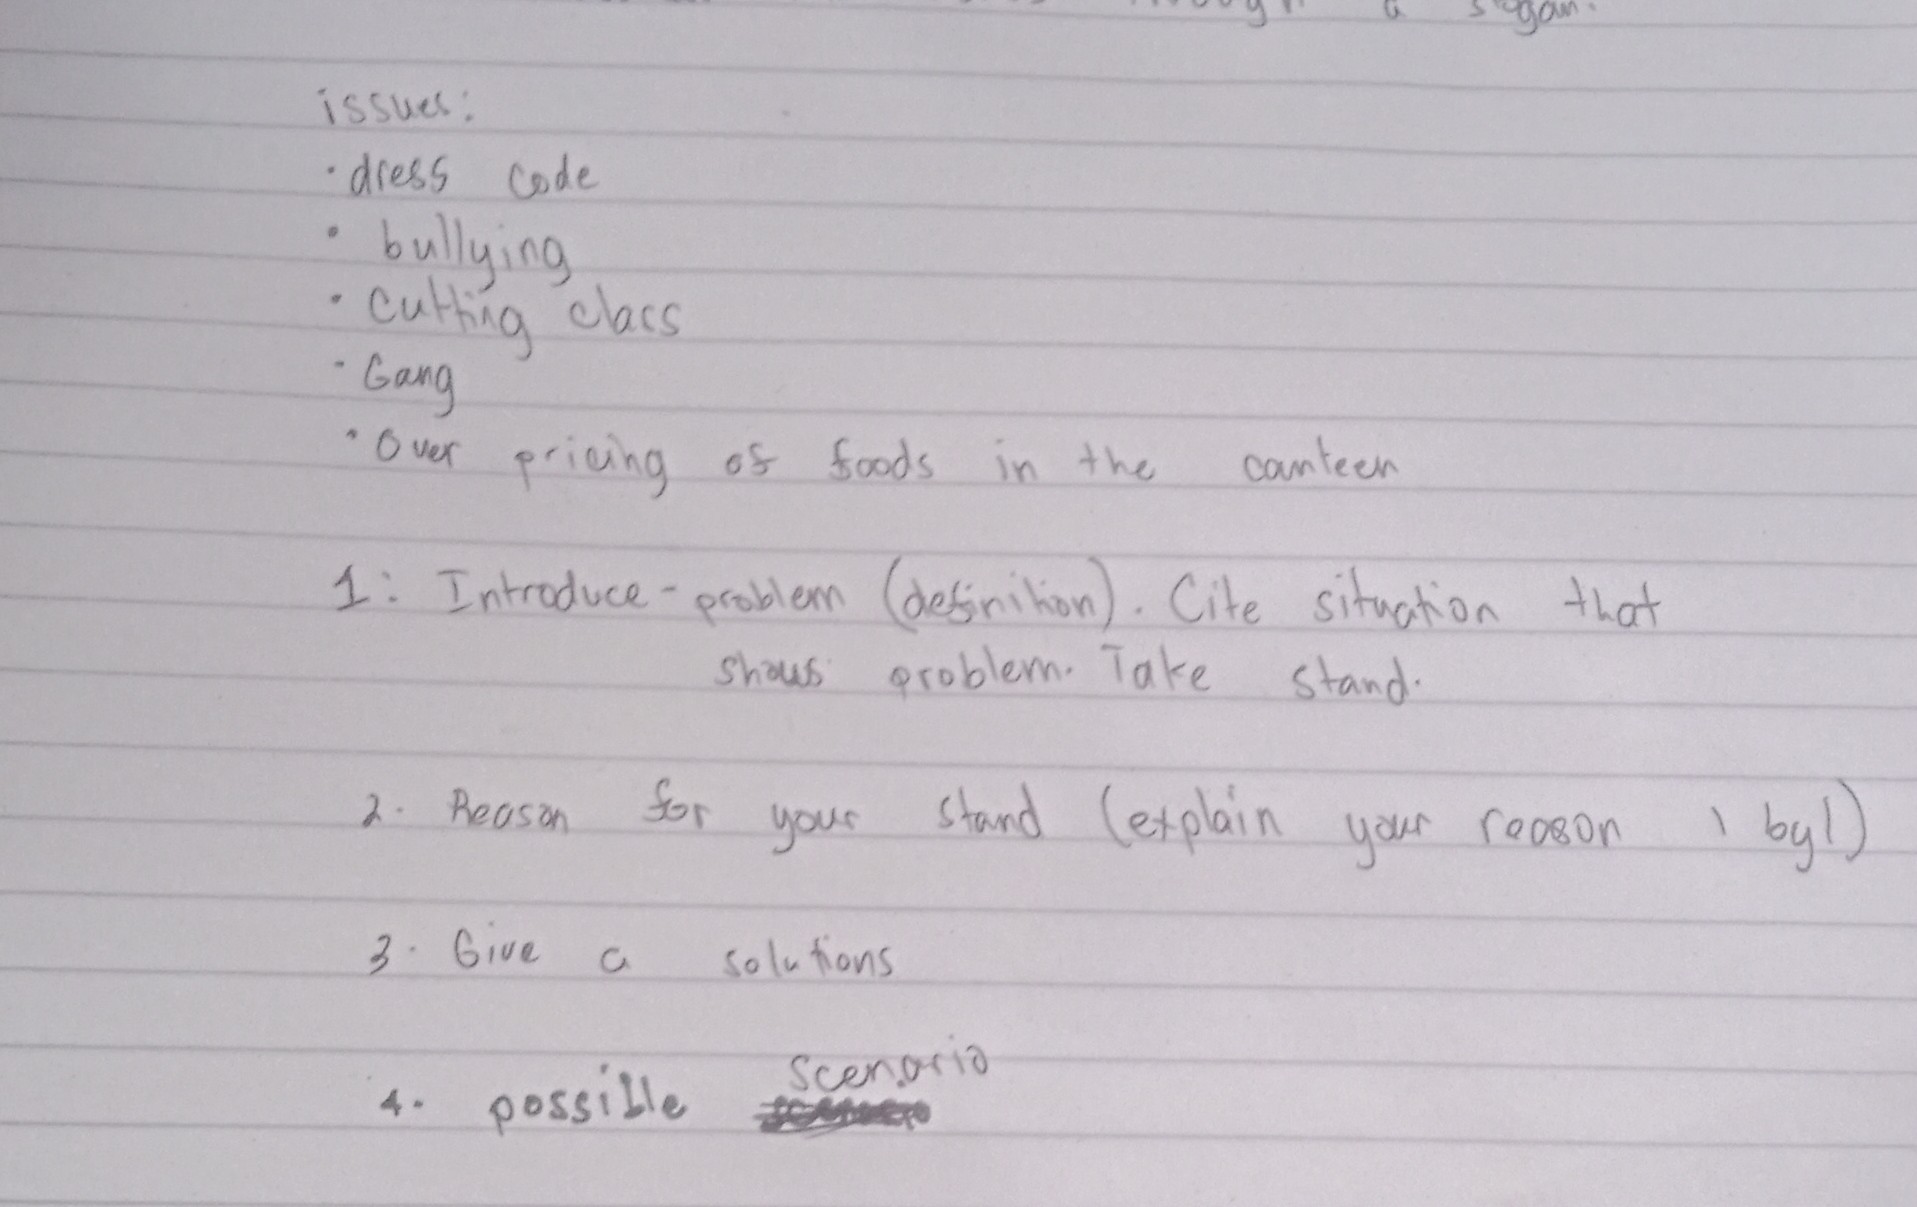 a slogan.
issues:
· dress code
• bullying
• cutting class
- Gang
• Over pricing of foods in the canteen
1: Introduce - problem (definition). Cite situation that
shows problem. Take stand.
2. Reason for your stand (explain your reason 1 by 1)
3. Give a solutions
scenario
4. possible